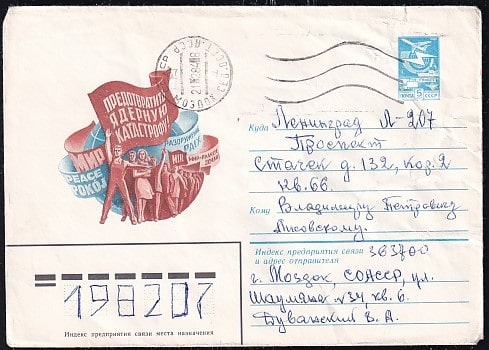 ПРЕДОТВРАТИТЬ
ЯДЕРНУЮ
КАТАСТРОФУ!
МИР
PEACE
POKOJ
РАЗОРУЖЕНИЕ
PAIX
МИР
МОЗДОК
ПОЧТА 5К СССР
Куда Ленинград Л-207
Проспект
Стачек д. 132, кор. 2
кв. 66.
Кому Владимиру Петровичу
Лисовскому.
Индекс предприятия связи 363700
и адрес отправителя
г. Моздок, СОАССР, ул.
Шаумяна №34, кв. 6.
Дуванский В. А.
198207
Индекс предприятия связи места назначения